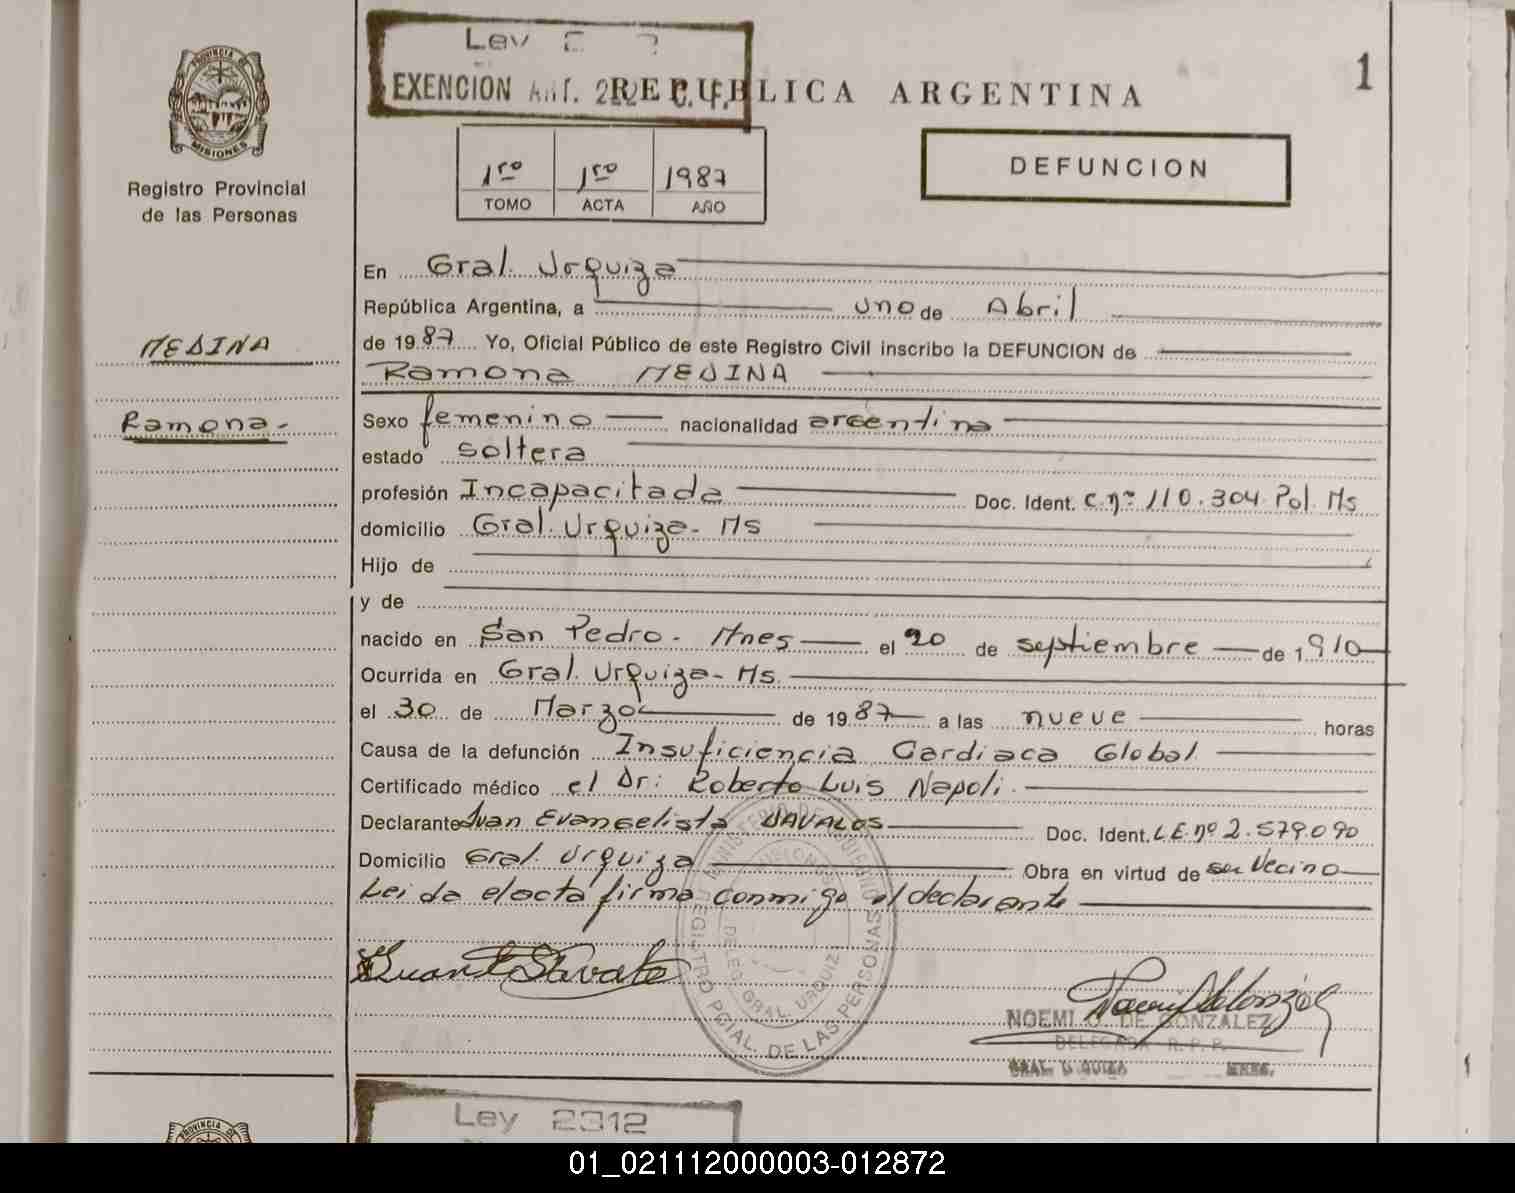 Ley
EXENCION ART. 2
REPUBLICA ARGENTINA
1
PROVINCIA DE
MISIONES
Registro Provincial
de las Personas
1ro 1ro 1987
TOMO ACTA AÑO
DEFUNCION
MEDINA
Ramona-
En Gral. Urquiza
República Argentina, a uno de Abril
de 1987 Yo, Oficial Público de este Registro Civil inscribo la DEFUNCION de
Ramona MEDINA
Sexo femenino nacionalidad argentina
estado soltera
profesión Incapacitada Doc. Ident. C.nº 110.304 Pol. Ms
domicilio Gral. Urquiza- Ms
Hijo de
y de
nacido en San Pedro- Mnes el 20 de septiembre de 1910
Ocurrida en Gral. Urquiza- Ms.
el 30 de Marzo de 1987 a las nueve horas
Causa de la defunción Insuficiencia Cardiaca Global
Certificado médico el Dr: Roberto Luis Napoli.
Declarante Juan Evangelista DAVALOS Doc. Ident. L.E. nº 2.579.090
Domicilio Gral. Urquiza Obra en virtud de ser Vecino
Leida el acta firma conmigo el declarante
REGISTRO PCIAL. DE LAS PERSONAS
DELEG. GRAL. URQUIZA
NOEMI DE GONZALEZ
DELEGADA R. P. P.
GRAL. URQUIZA MNES.
Ley 2312
PROVINCIA DE
01_021112000003-012872